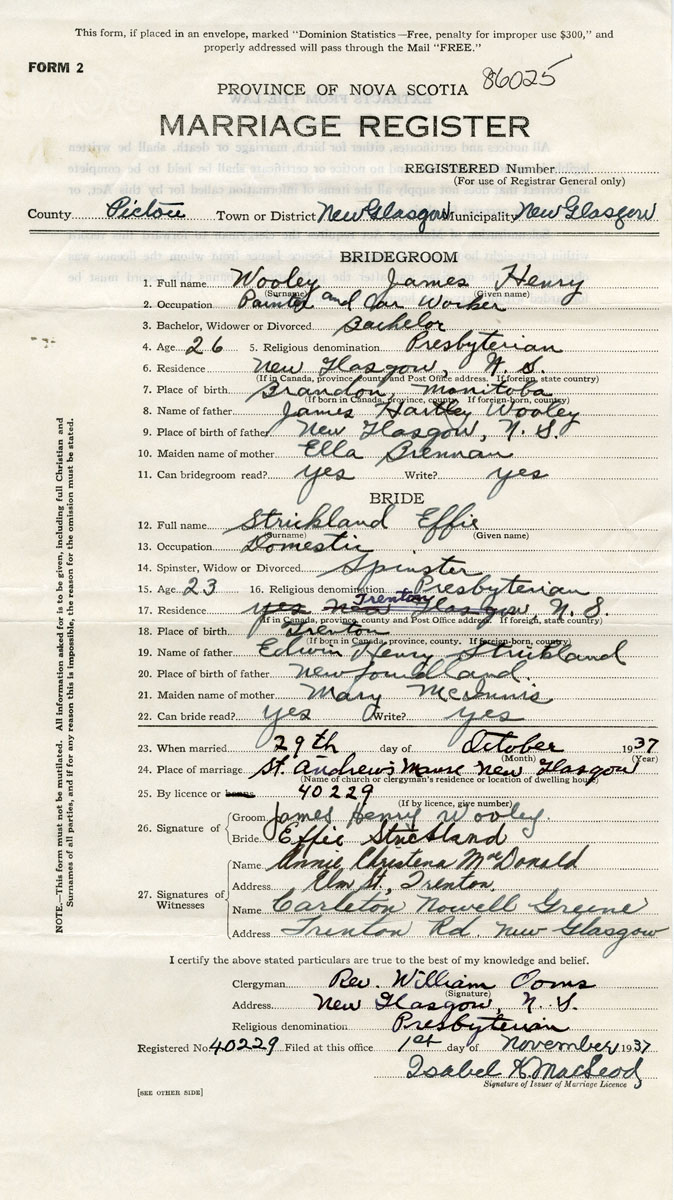 This form, if placed in an envelope, marked "Dominion Statistics—Free, penalty for improper use $300," and
properly addressed will pass through the Mail "FREE."
FORM 2
86025
PROVINCE OF NOVA SCOTIA
MARRIAGE REGISTER
REGISTERED Number
(For use of Registrar General only)
County Pictou Town or District New Glasgow Municipality New Glasgow
BRIDEGROOM
1. Full name Wooley James Henry
(Surname) (Given name)
2. Occupation Painter and Car Worker
3. Bachelor, Widower or Divorced Bachelor
4. Age 26 5. Religious denomination Presbyterian
6. Residence New Glasgow, N. S.
(If in Canada, province, county and Post Office address. If foreign, state country)
7. Place of birth Brandon, Manitoba
(If born in Canada, province, county. If foreign-born, country)
8. Name of father James Hartley Wooley
9. Place of birth of father New Glasgow, N. S.
10. Maiden name of mother Ella Brennan
11. Can bridegroom read? yes Write? yes
BRIDE
12. Full name Strickland Effie
(Surname) (Given name)
13. Occupation Domestic
14. Spinster, Widow or Divorced Spinster
15. Age 23 16. Religious denomination Presbyterian
Trenton
17. Residence yes New Glasgow, N. S.
(If in Canada, province, county and Post Office address. If foreign, state country)
18. Place of birth Trenton
(If born in Canada, province, county. If foreign-born, country)
19. Name of father Edwin Henry Strickland
20. Place of birth of father Newfoundland.
21. Maiden name of mother Mary McInnis
22. Can bride read? yes Write? yes
23. When married 29th day of October 1937
(Month) (Year)
24. Place of marriage St. Andrew's Manse New Glasgow
(Name of church or clergyman's residence or location of dwelling house)
25. By licence or banns 40229
(If by licence, give number)
26. Signature of Groom James Henry Wooley.
Bride Effie Strickland
27. Signatures of Witnesses
Name Annie Christena MacDonald
Address Elm St., Trenton
Name Carleton Nowell Greene
Address Trenton Rd. New Glasgow
I certify the above stated particulars are true to the best of my knowledge and belief.
Clergyman Rev. William Ooms
(Signature)
Address New Glasgow, N. S.
Religious denomination Presbyterian
Registered No. 40229 Filed at this office 1st day of November 1937
Isabel K. MacLeod
Signature of Issuer of Marriage Licence
[SEE OTHER SIDE]
NOTE.—This form must not be mutilated. All information asked for is to be given, including full Christian and
Surnames of all parties, and if for any reason this is impossible, the reason for the omission must be stated.